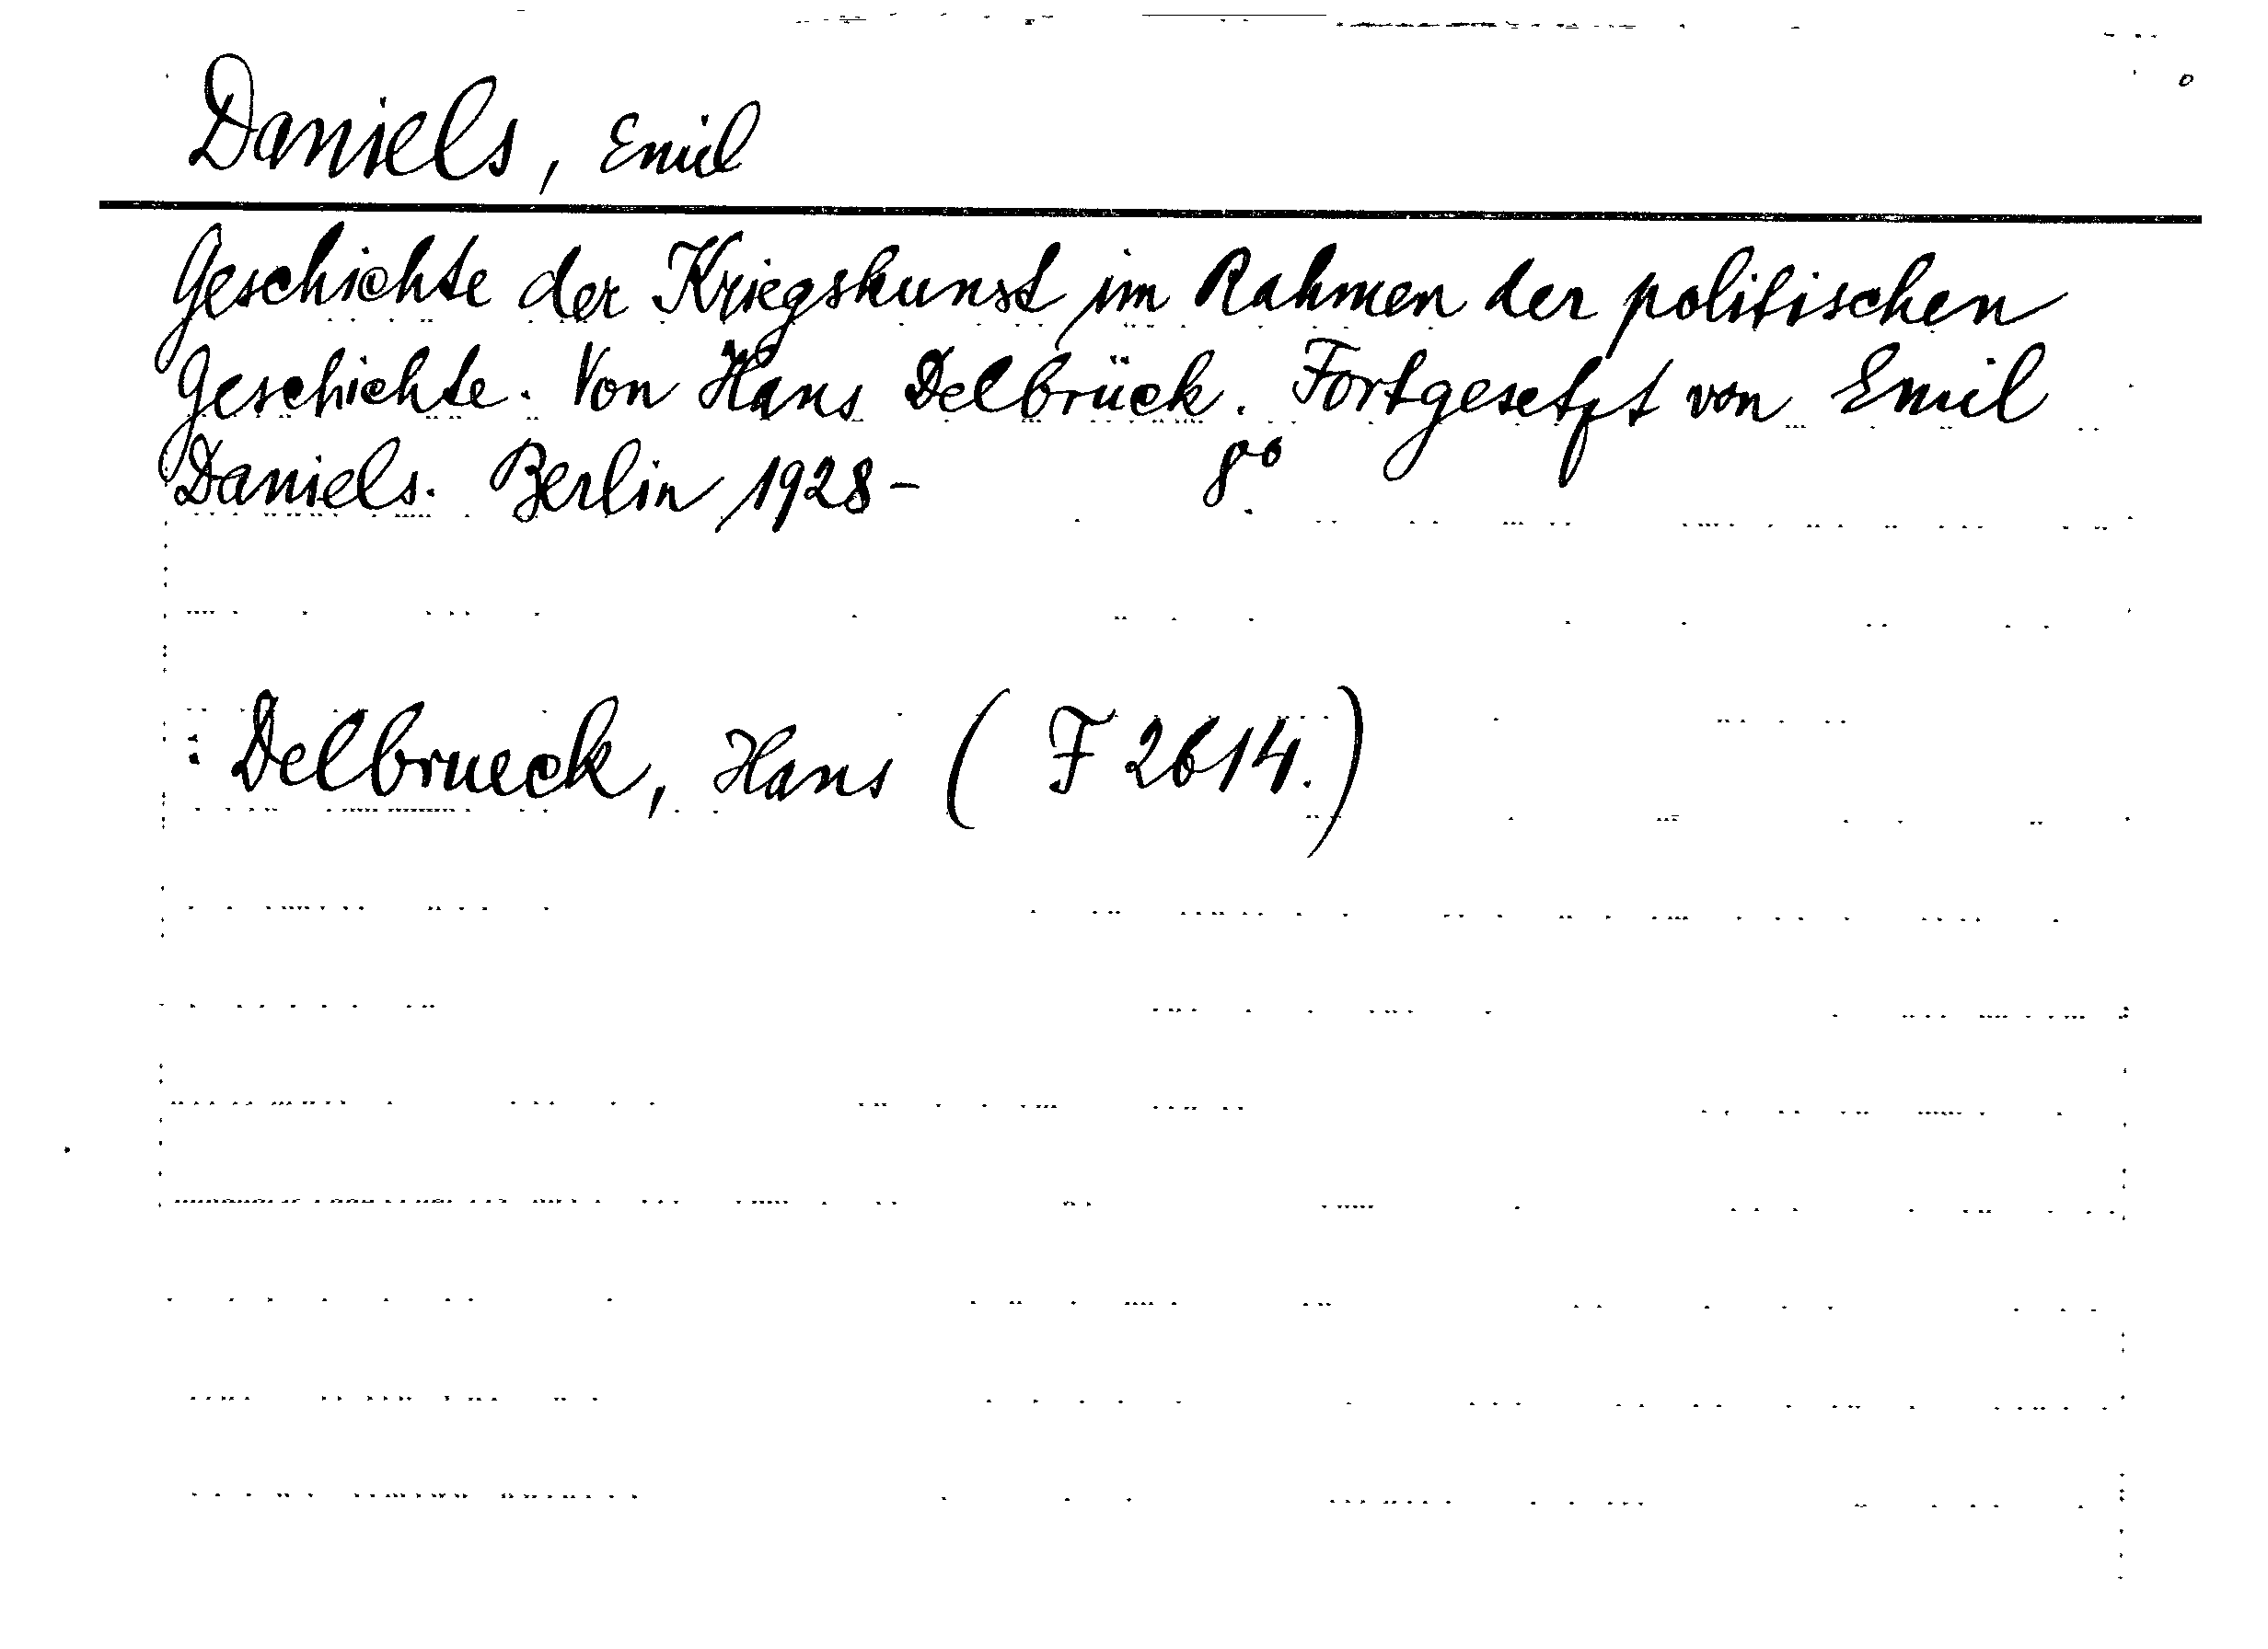 Daniels, Emil
Geschichte der Kriegskunst im Rahmen der politischen
Geschichte. Von Hans Delbrück. Fortgesetzt von Emil
Daniels. Berlin 1928- 8°
: Delbrueck, Hans (F 2614.)